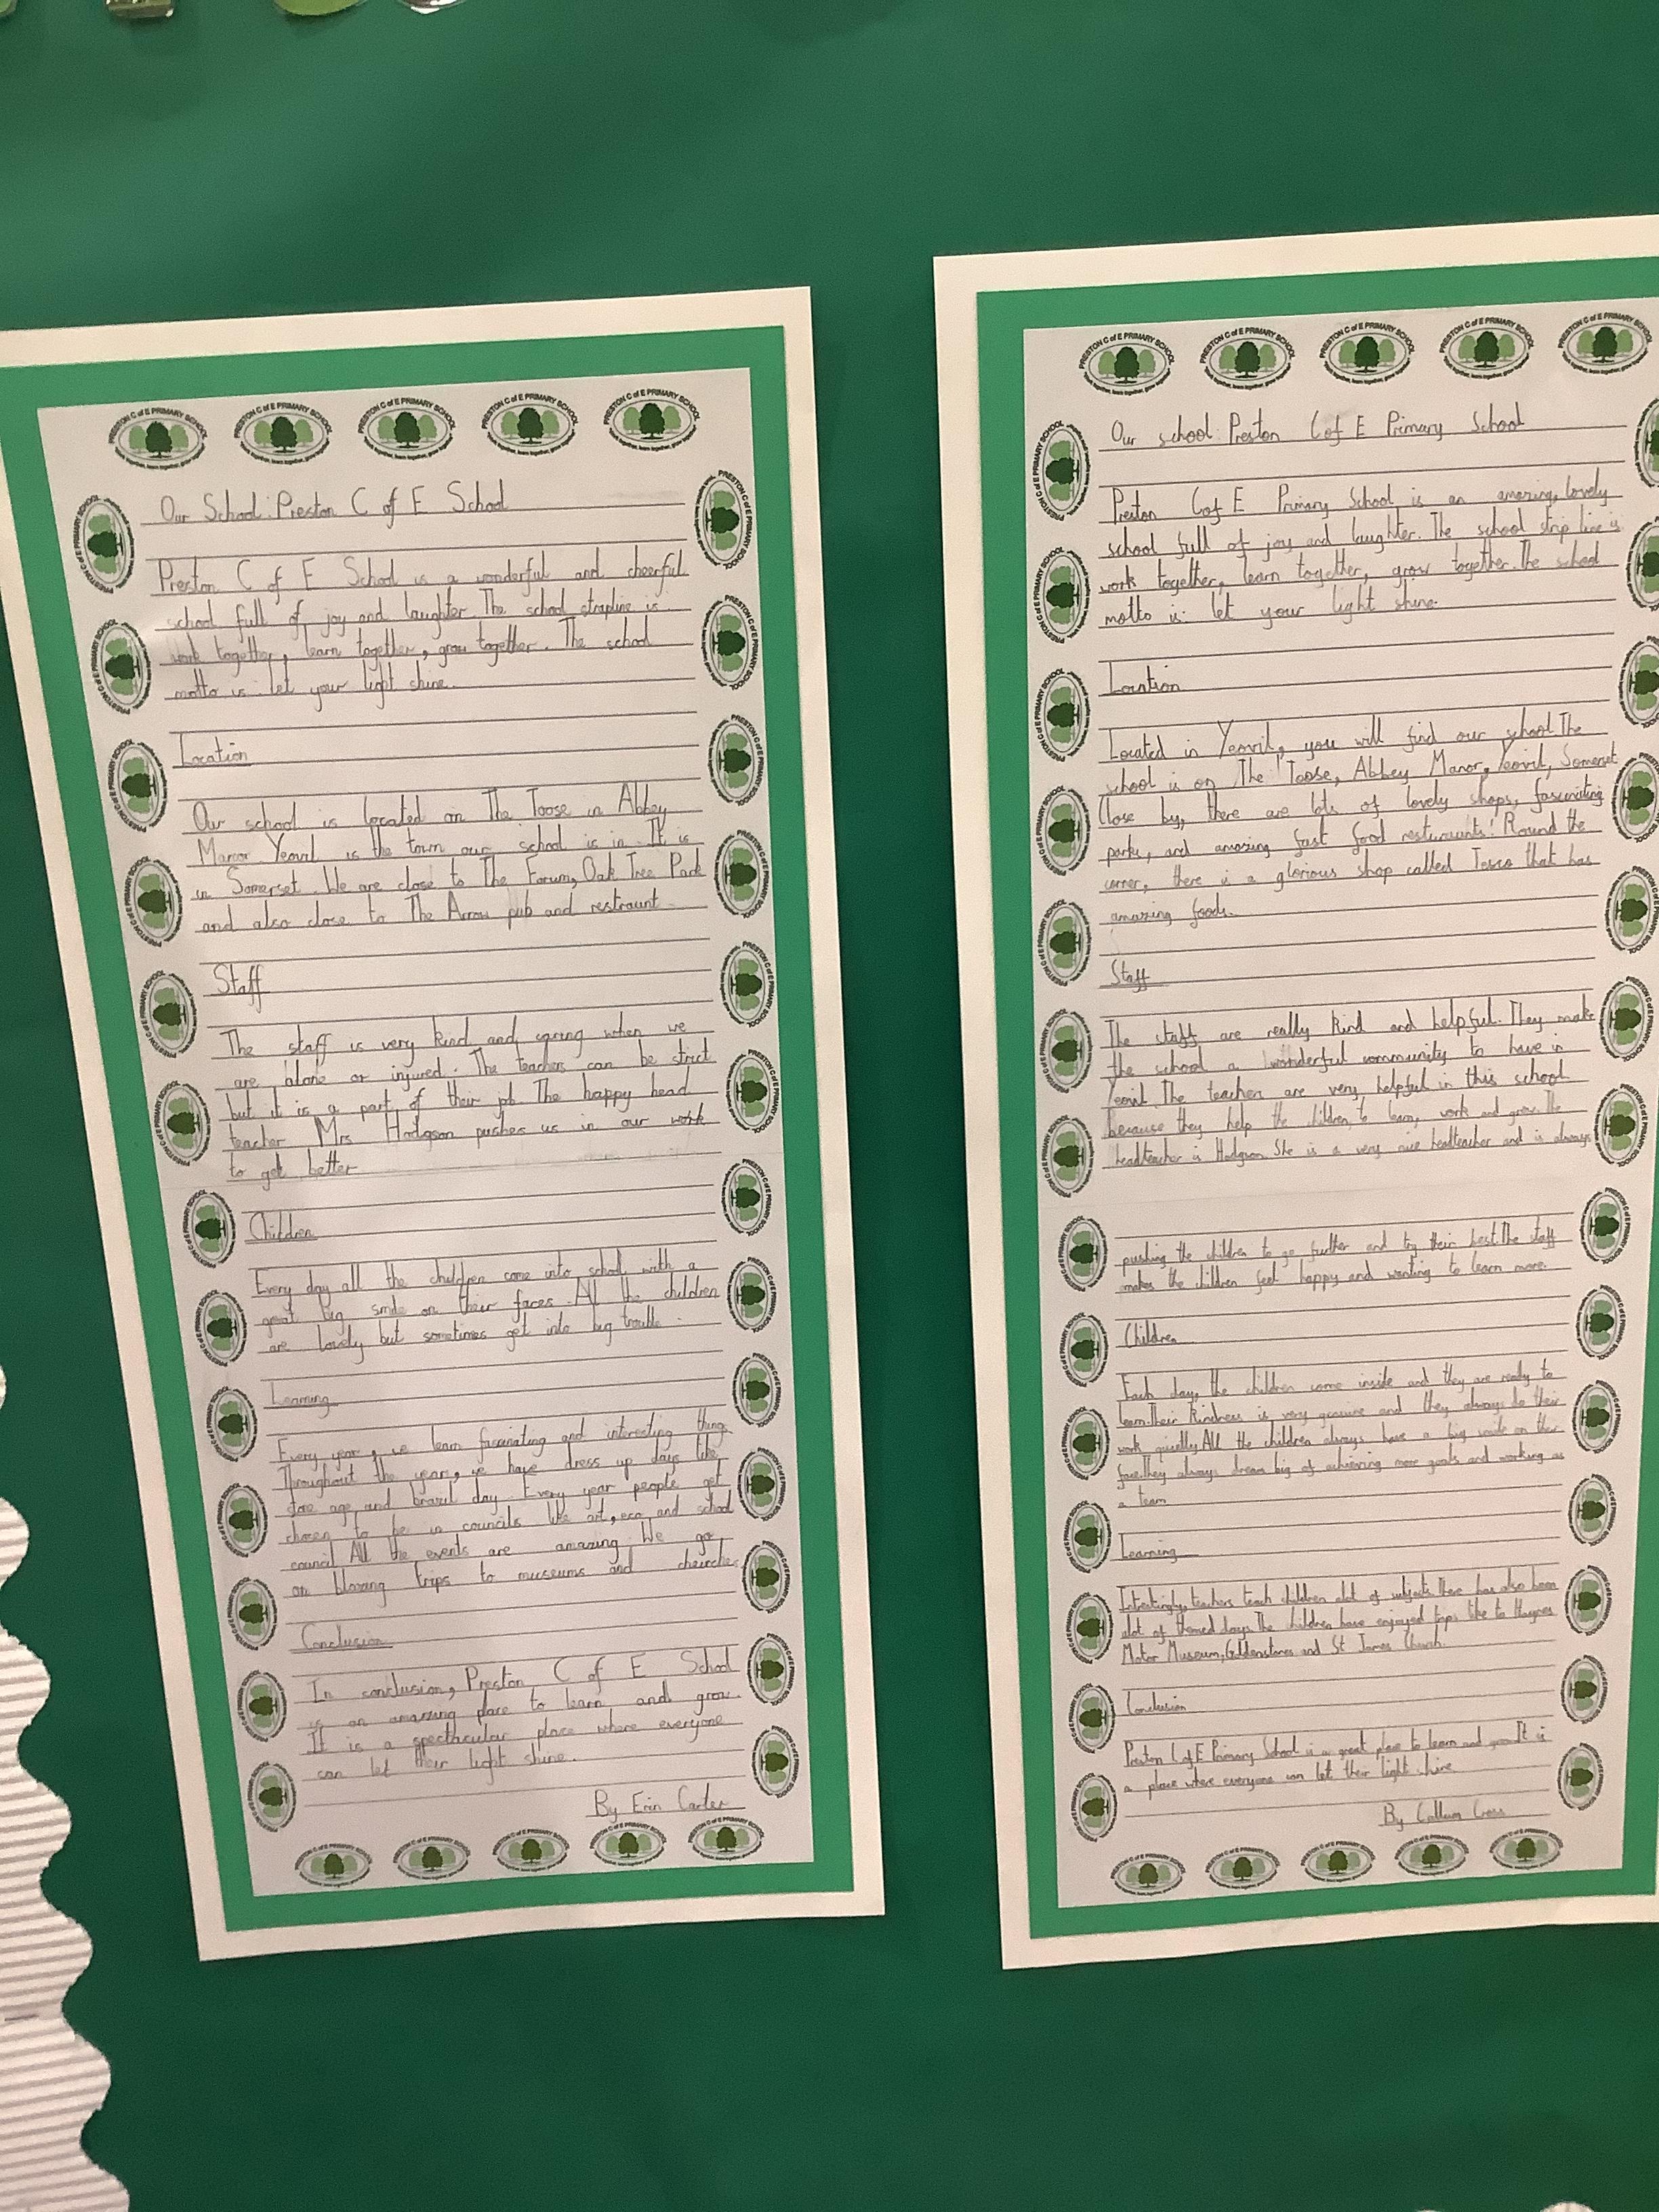 Our School: Preston C of E School
Preston C of E School is a wonderful and cheerful
school full of joy and laughter. The school strapline is
work together, learn together, grow together. The school
motto is: let your light shine.
Location
Our school is located on The Toose in Abbey
Manor. Yeovil is the town our school is in. It is
in Somerset. We are close to The Forum, Oak Tree Park
and also close to The Arrow pub and restraunt.
Staff
The staff is very kind and caring when we
are alone or injured. The teachers can be strict
but it is a part of their job. The happy head
teacher Mrs Hodgson pushes us in our work
to get better
Children
Every day all the children come into school with a
great big smile on their faces. All the children
are lovely but sometimes get into big trouble.
Learning
Every year, we learn fascinating and interesting things
Throughout the year, we have dress up days like
stone age and brazil day. Every year people get
chosen to be in councils like art, eco and school
council. All the events are amazing. We go
on trips to museums and churches
Conclusion
In conclusion, Preston C of E School
is an amazing place to learn and grow.
It is a spectacular place where everyone
can let their light shine.
By Erin Carter
Our school: Preston C of E Primary School
Preston C of E Primary School is an amazing, lovely
school full of joy and laughter. The school strip line is
work together, learn together, grow together. The school
motto is: let your light shine.
Location
Located in Yeovil, you will find our school. The
school is on The Toose, Abbey Manor, Yeovil, Somerset
Close by, there are lots of lovely shops, fascinating
parks, and amazing fast food resturaunts! Round the
corner, there is a glorious shop called Tesco that has
amazing foods.
Staff
The staff are really kind and helpful. They make
the school a wonderful community to have in
Yeovil. The teacher are very helpful in this school
because they help the children to learn, work and grow. The
headteacher is Hodgson. She is a very nice headteacher and is always
pushing the children to go further and try their best. The staff
makes the children feel happy and wanting to learn more.
Children
Each day, the children come inside and they are ready to
learn. Their kindness is very genuine and they always do their
work quietly. All the children always have a big smile on their
face. They always dream big of achieving more goals and working as
a team
Learning
Interestingly, teachers teach children alot of subjects. There has also been
alot of themed days. The children have enjoyed trips like to Haynes
Motor Museum, Goldenstones and St James Church.
Conclusion
Preston C of E Primary School is a great place to learn and grow. It is
a place where everyone can let their light shine
By Callum Cross
PRESTON C of E PRIMARY SCHOOL
work together, learn together, grow together